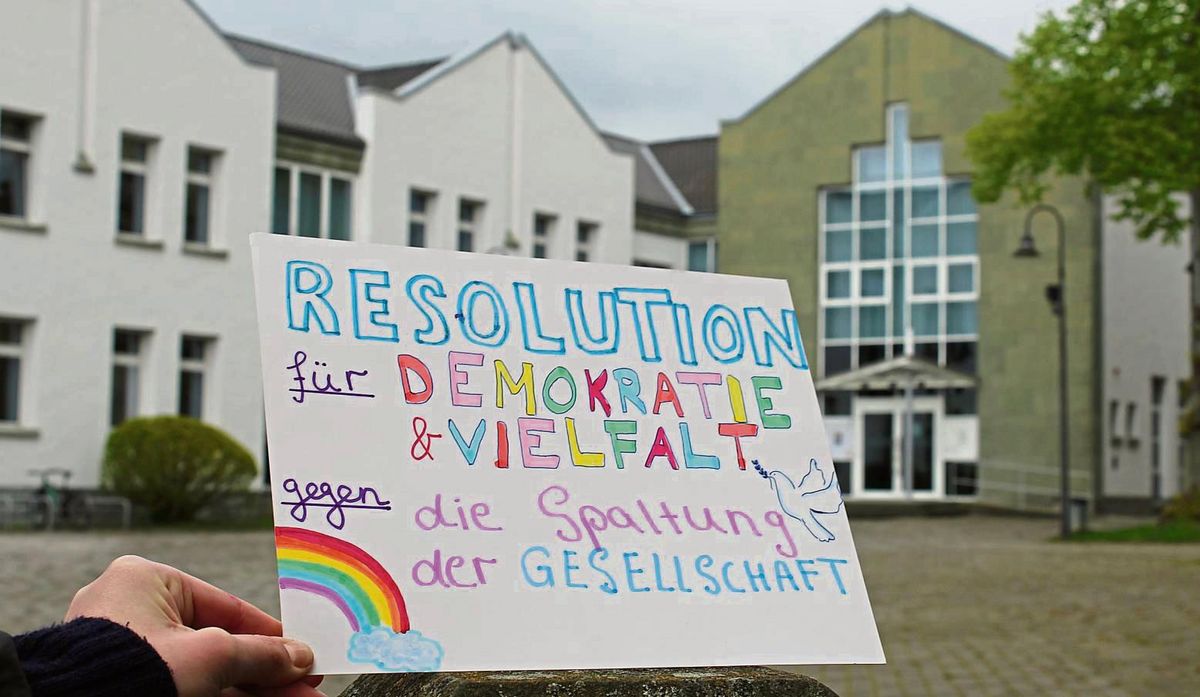 RESOLUTION
für DEMOKRATIE
& VIELFALT
gegen die Spaltung
der GESELLSCHAFT